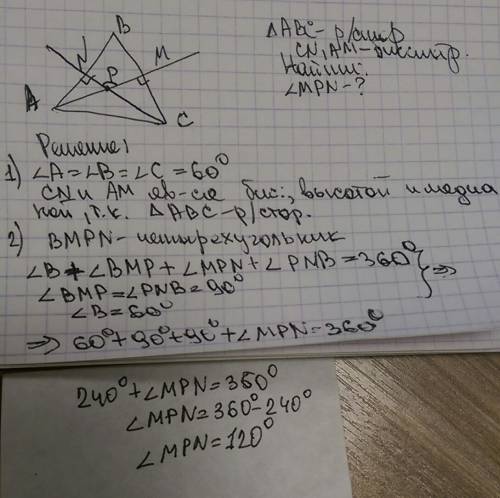 B
N
M
P
A
C
ΔABC - р/стор
CN, AM - биссектр.
Найти:
∠MPN - ?
Решение:
1) ∠A = ∠B = ∠C = 60°
CN и AM яв-ся бис., высотой и медиа
ной, т.к. ΔABC - р/стор.
2) BMPN - четырехугольник
∠B + ∠BMP + ∠MPN + ∠PNB = 360°
∠BMP = ∠PNB = 90°
∠B = 60° } ⇒
⇒ 60° + 90° + 90° + ∠MPN = 360°
240° + ∠MPN = 360°
∠MPN = 360° - 240°
∠MPN = 120°